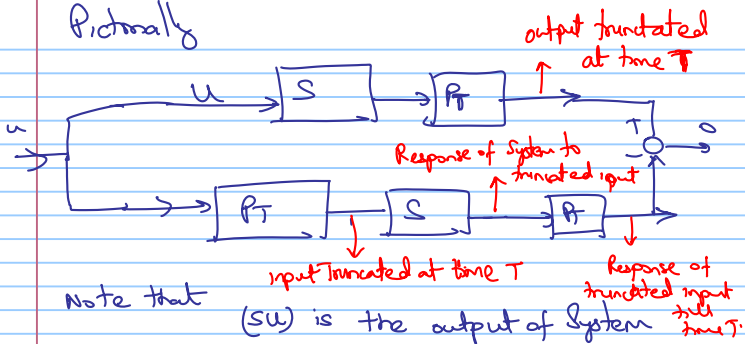 Pictorially
output truncated
at time T
u
u
S
PT
T
0
Response of System to
truncated input
PT
S
PT
input Truncated at time T
Response of
truncated input
till
time T.
Note that
(SU) is the output of System